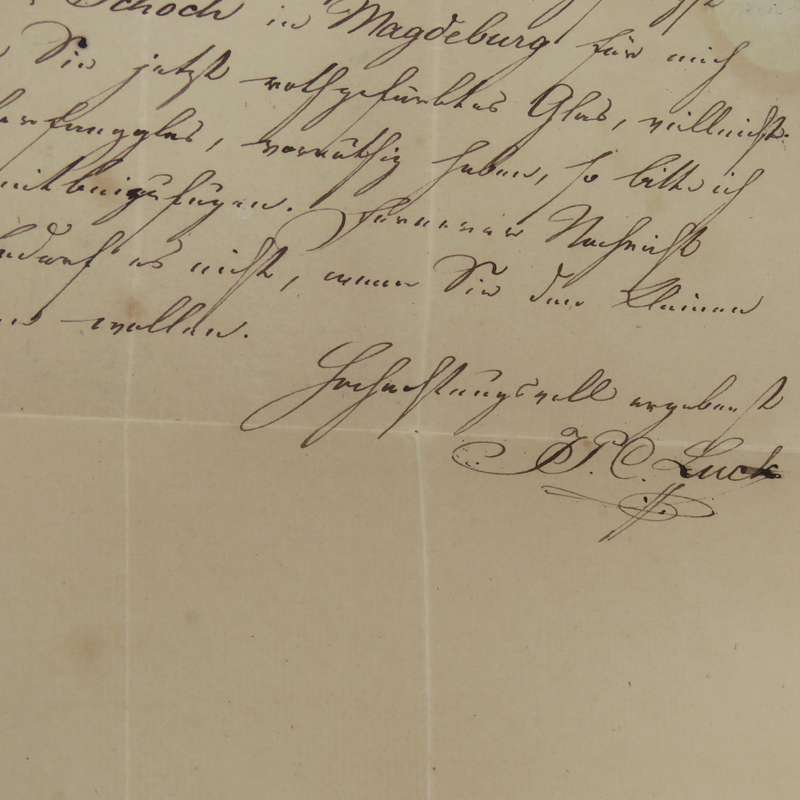 Schoch in Magdeburg für mich
Sie jetzt rothgefärbtes Glas, vielleicht
vorräthig haben, so bitte ich
mitbeizufügen. Fernerer Nachricht
bedarf es nicht, wenn Sie den kleinen
wollen.
Hochachtungsvoll ergebenst
J. P. C. Luck